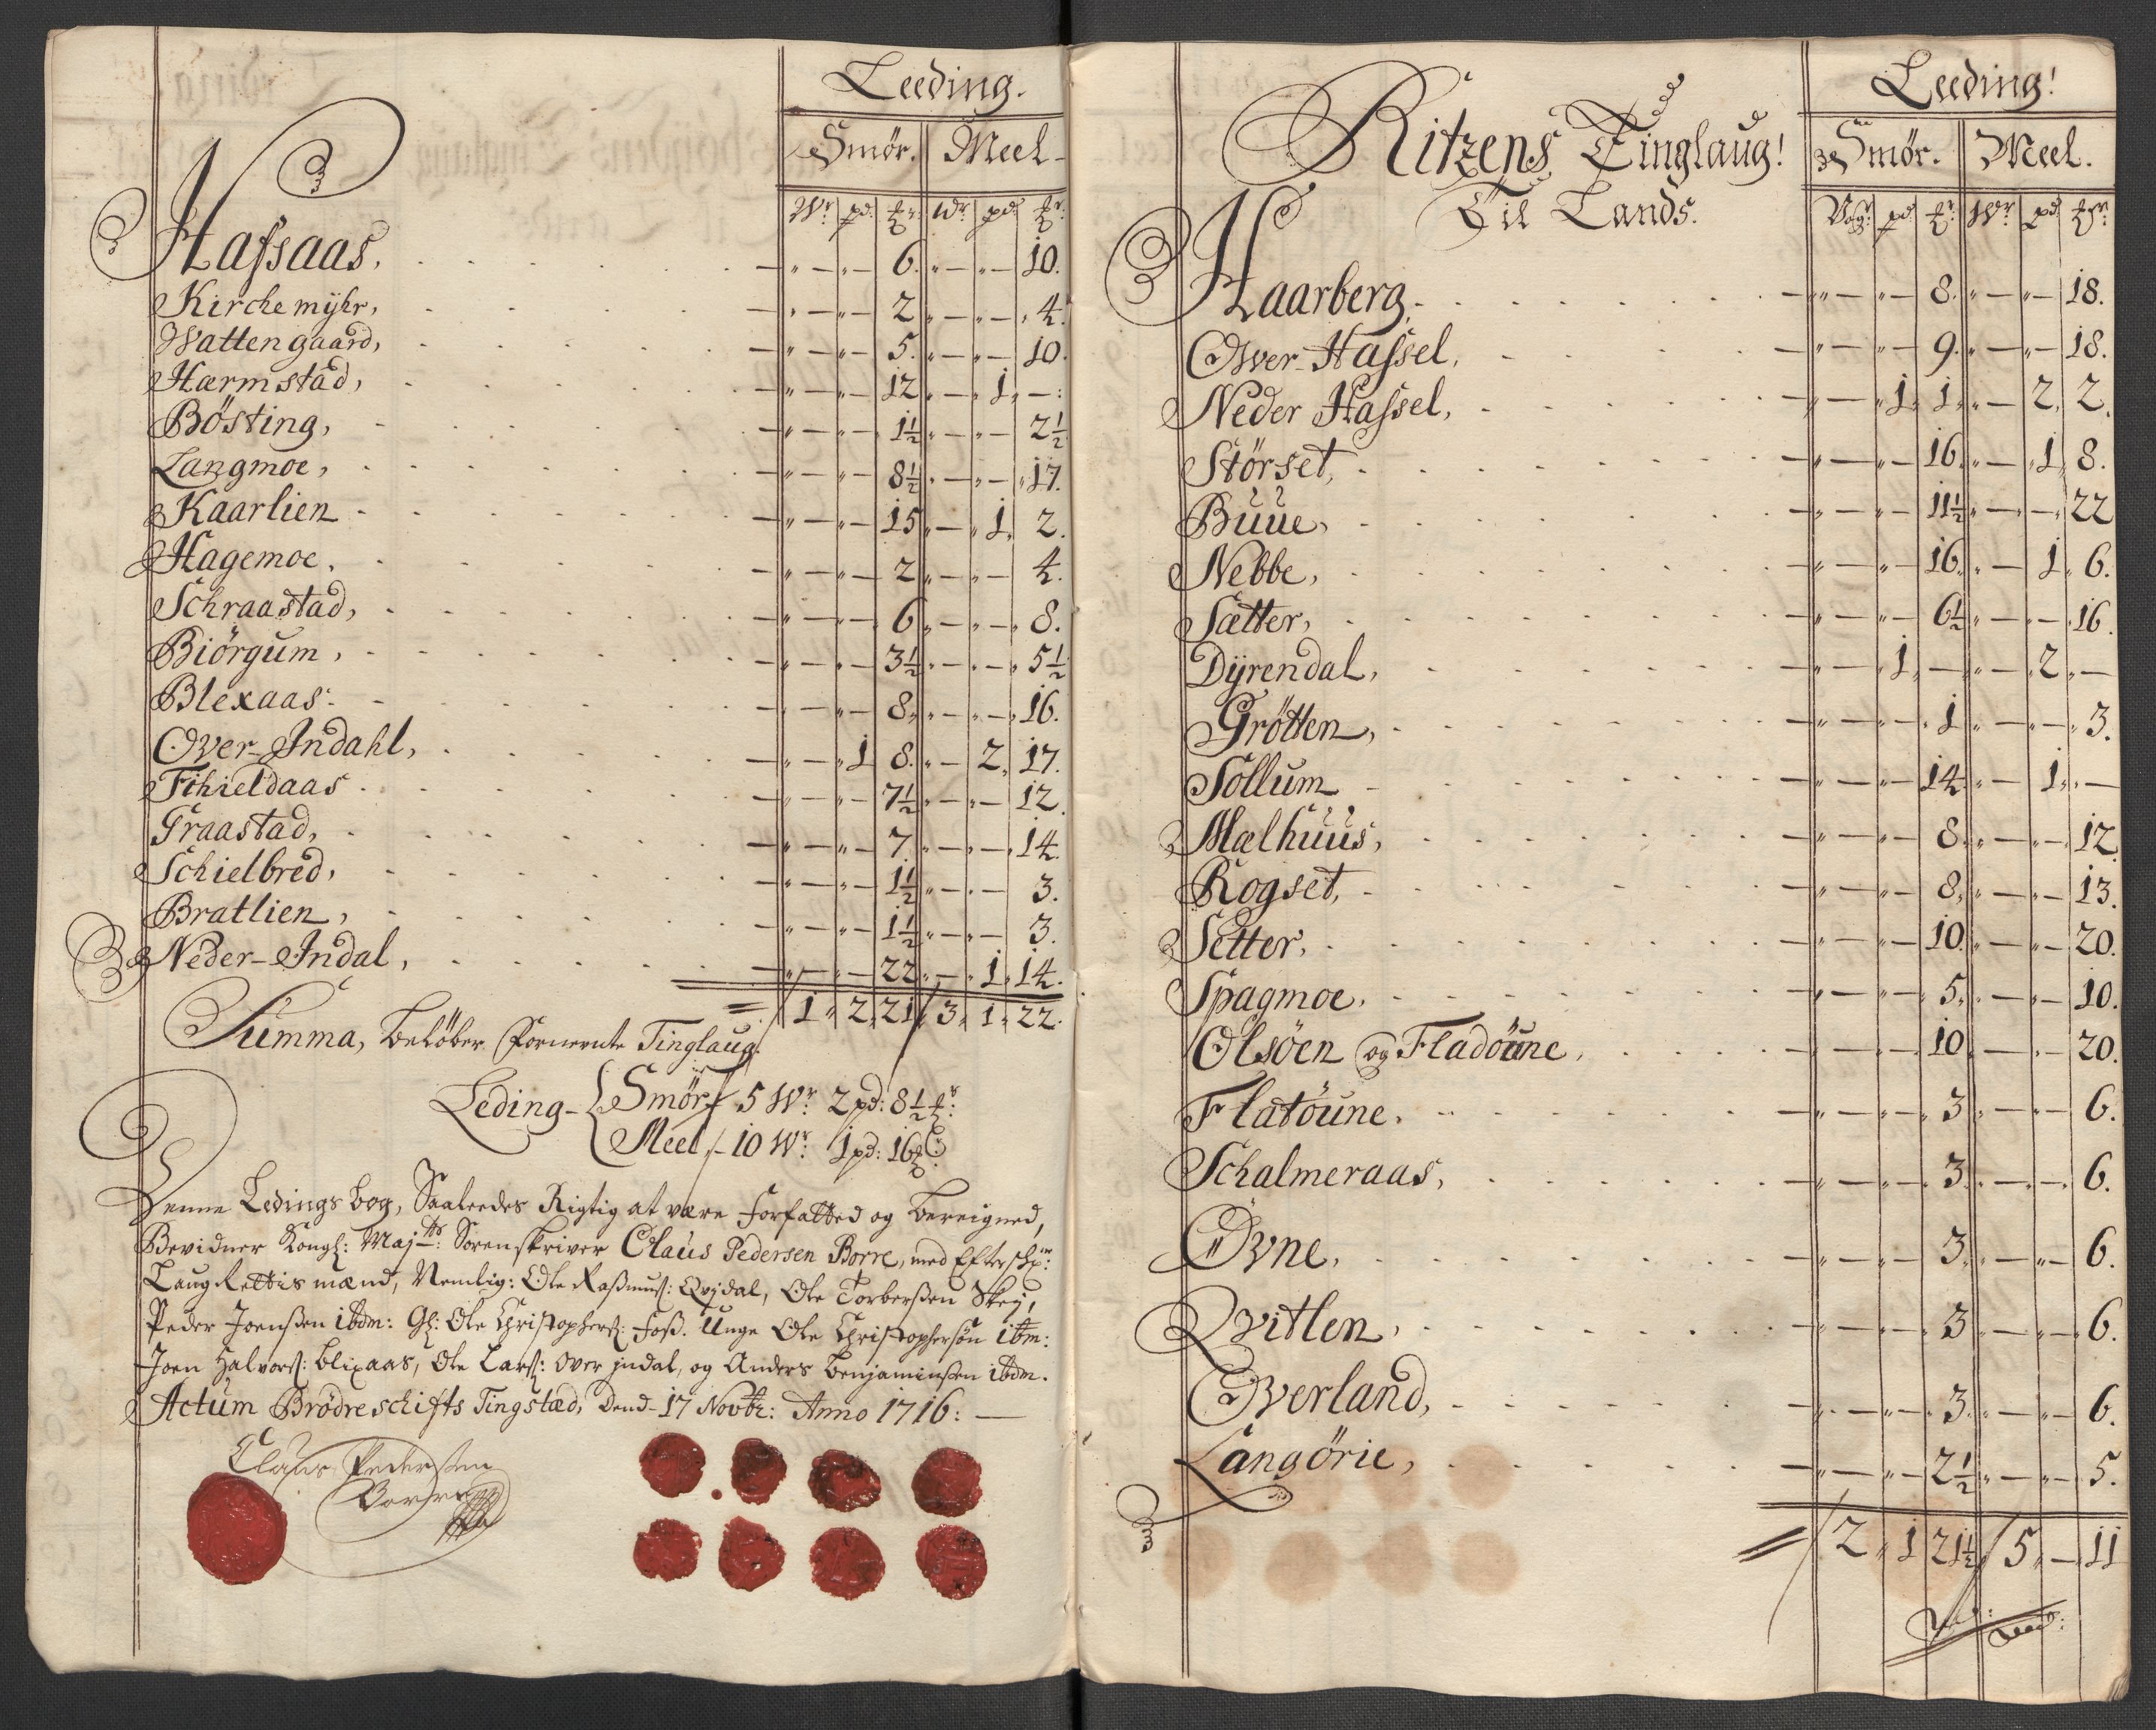 Leeding.
Smør. Meel
Wr: pd: ℔r: Wr: pd: ℔r:
Hafsaas, 6. 10.
Kirche mÿhr, 2 4.
Wattengaard, 5. 10.
Hærmstad, 12 1. — :
Bösting, 1½ 2½
Langmoe, 8½ 17.
Kaarlien 15 1. 2.
Hagemoe, 2 4.
Schraastad, 6 8.
Biörgum, 3½ 5½
Blexaas: 8. 16.
Over-Indahl, 1 8. 2. 17.
Fihieldaas 7½ 12.
Graastad, 7. 14.
Schielbred, 1½ 3.
Bratlien, 1½ 3.
Neder-Indal, 22 1. 14.
1. 2. 21 / 3. 1. 22.
Summa, beløber fornernte Tinglaug.
Leding- Smör / 5 Wr: 2 pd: 8½ ℔r:
Meel / 10 Wr: 1 pd: 16 ℔
Denne Ledings bog, Saaleedes Rigtig at være forfatted og bereigned,
Bevidner Kongl: Majts: Sorenskriver Claus Pedersen Borre, med Efterschr:
Laug Rettis mænd, Nemlig: Ole Rasmuss: Qvjdal, Ole Torberssen Skej,
Peder Joenssen ibdm: Gl: Ole Christophers: Foss. Unge Ole Christophersøn ibm:
Joen Halvors: Blixaas, Ole Lars: Over jndal, og Anders Benjaminssen ibdm.
Actum Brödreschifts Tingstæd, Dend 17 Novbr: Anno 1716: —
Claus Pedersen
Borre
Leeding!
Ritzens Tinglaug! Smør. Meel.
Til Lands. Wogr: pd: ℔r: Wr: pd: ℔r:
Haarberg, 8. 18.
Over-Hassel, 9. 18.
Neder Hassel, 1. 1. 2. 2.
Störset, 16. 1. 8.
Buue, 11½ 22
Nebbe, 16. 1. 6.
Sætter, 6½ 16.
Dÿrendal, 1. — 2. —
Grötten, 1 3.
Sollum 14. 1. —
Mælhuus, 8. 12.
Rogset, 8. 13.
Setter, 10. 20.
Spagmoe. 5. 10.
Olsöen og Fladöune, 10 20.
Flatöune. 3 6.
Schalmeraas, 3. 6.
Övne, 3. 6.
Qvitlen, 3 6.
Overland, 3. 6.
Langörie, 2½ 5.
2. 1 21½ / 5. — 11